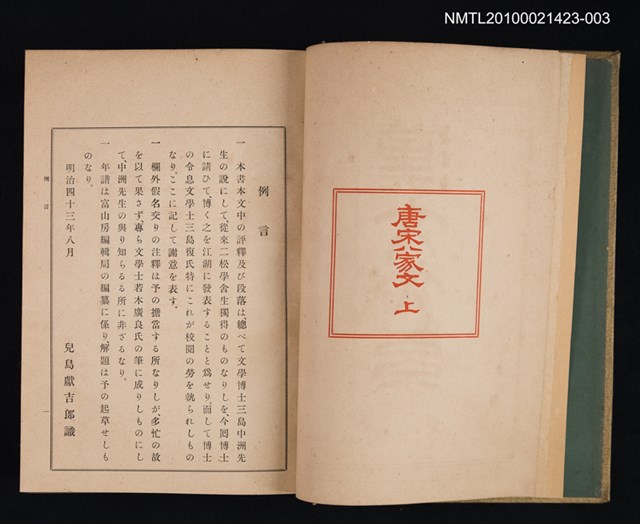 NMTL20100021423-003
唐宋八家文 上
例言
一 本書本文中の評釋及び段落は、總べて文學博士三島中洲先
生の說にして、從來二松學舍生獨得のものなりしを、今囘博士
に請ひて、博く之を江湖に發表することと爲せり、而して博士
の令息文學士三島復氏特にこれが校閱の勞を執られしもの
なり。ここに記して謝意を表す。
一 欄外假名交りの注釋は予の擔當する所なりしが、多忙の故
を以て果さず、專ら文學士若本廣良氏の筆に成りしものにし
て、中洲先生の與り知らるる所に非ざるなり。
一 年譜は富山房編輯局の編纂に係り、解題は予の起草せしも
のなり。
明治四十三年八月
兒島獻吉郎識
例言
一